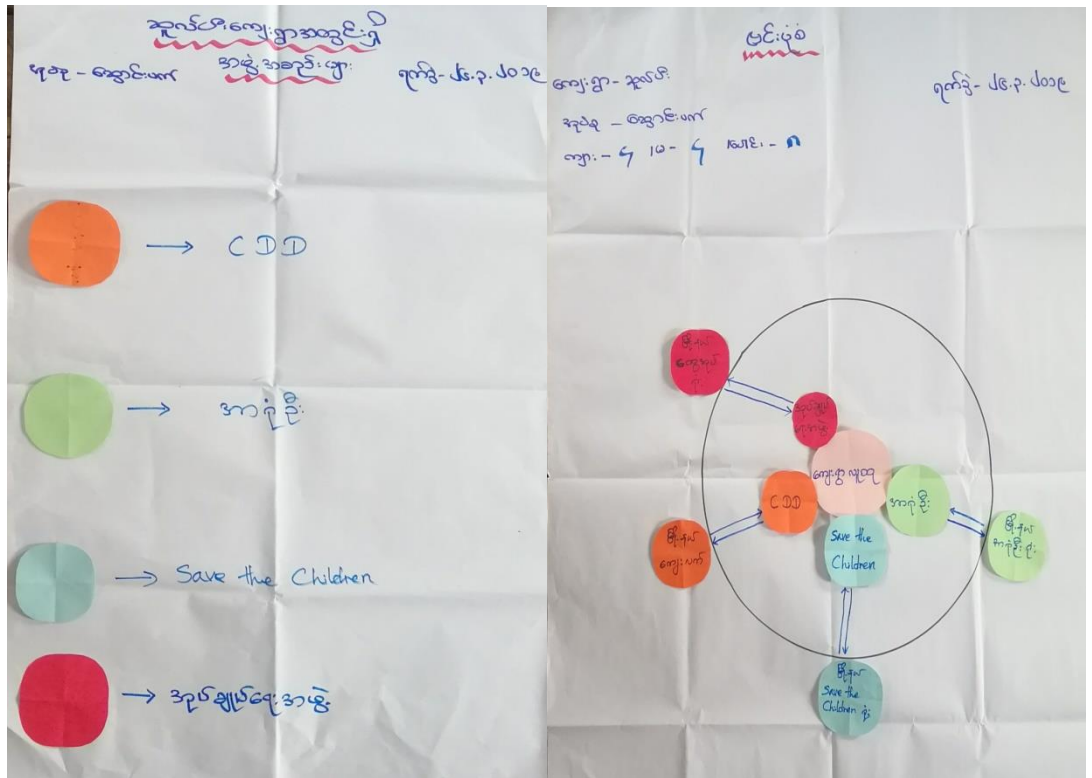 ဆူလ်ပီးကျေးရွာအတွင်းရှိ
အဖွဲ့အစည်းများ
ရက်စွဲ - ၂၆.၃.၂၀၁၉
CDD
အာဂုံဦး
Save the Children
အုပ်ချုပ်ရေးအဖွဲ့
ဗင်းပုံစံ
ကျေးရွာ - ဆူလ်ပီး
ရက်စွဲ - ၂၆.၃.၂၀၁၉
ကျား - ၄ ၊ မ - ၄ ၊ ပေါင်း - ၈
မြို့နယ်
ထွေအုပ်
ရုံး
အုပ်ချုပ်
ရေးအဖွဲ့
ကျေးရွာလူထု
CDD
အာဂုံဦး
Save the
Children
မြို့နယ်
ကျေးလက်
မြို့နယ်
အာဂုံဦးရုံး
မြို့နယ်
Save the
Children ရုံး